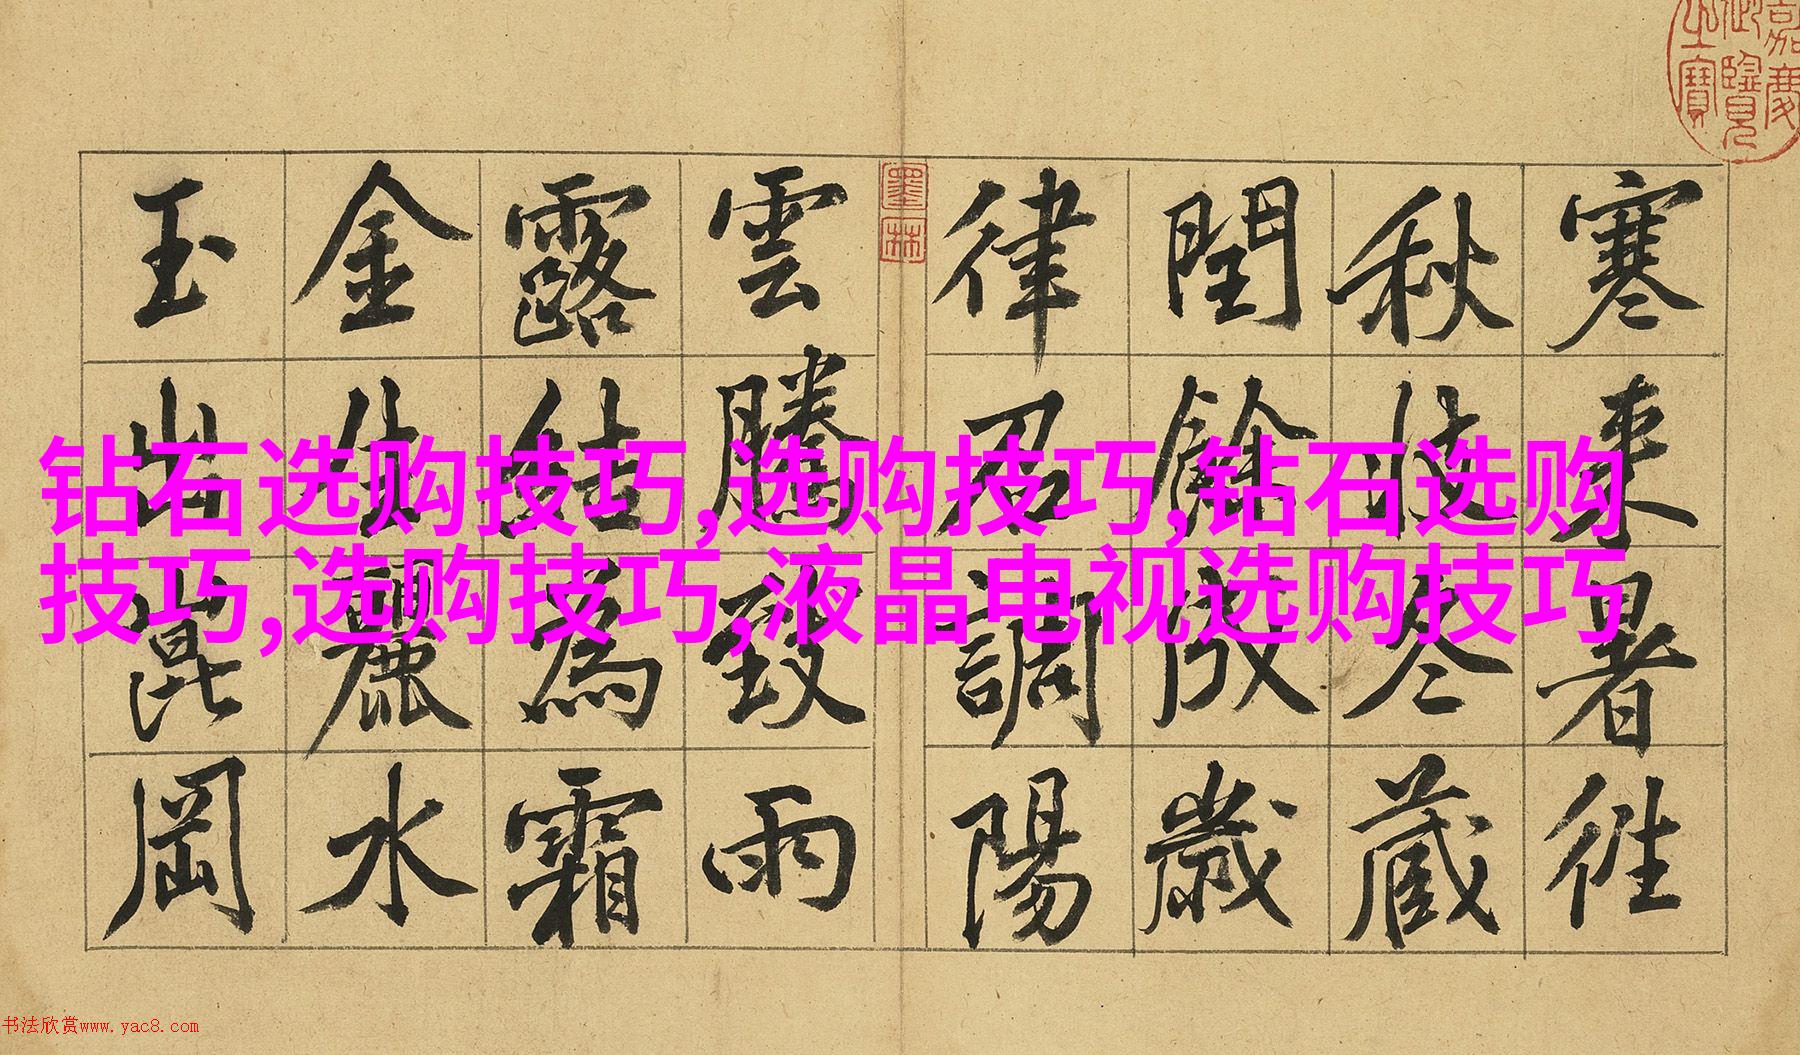 钻石选购技巧,选购技巧,钻石选购
技巧,选购技巧,液晶电视选购技巧
寒来暑徃
秋收冬藏
閏餘成歲
律召調陽
雲騰致雨
露結為霜
金生麗水
玉出崑岡
嘉慶御覽之寶
墨林
书法欣赏www.yac8.com